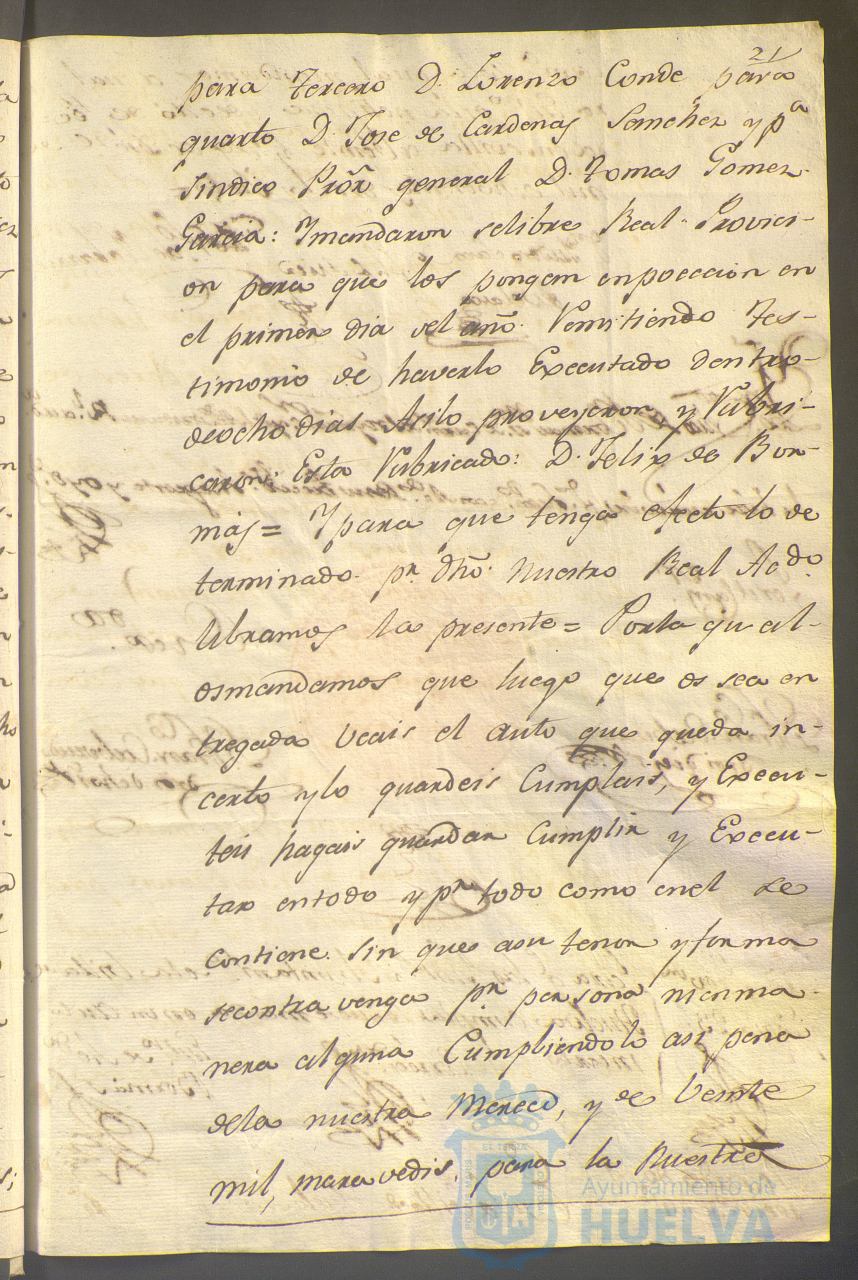 21
para tercero D. Lorenzo Conde para
quarto D. Jose de Cardenas Sanchez y pa
Sindico Pror general D. Tomas Gomez
Garcia: Y mandaron se libre Real Provici-
on para que los pongan en poceccion en
el primer dia del año. Remitiendo Tes-
timonio de haverlo Executado dentro
de ocho dias Asi lo proveyeron, y Rubri-
caron: Esta Rubricado: D. Felix de Bor-
mas = Y para que tenga efecto lo de
terminado pr. dho. Nuestro Real Acdo.
libramos la presente = Por la qual
os mandamos que luego que os sea en
tregada Veais el auto que queda in-
certo y lo guardeis Cumplais, y Execu-
teis hagais guardar Cumplir y Execu-
tar en todo y pr. todo como en el se
contiene. Sin que a su tenor y forma
se contravenga pr. persona nienma
nera alguna Cumpliendolo asi pena
de la nuestra Merced, y de Veinte
mil, maravedis, para la Nuestra
Ayuntamiento de
HUELVA